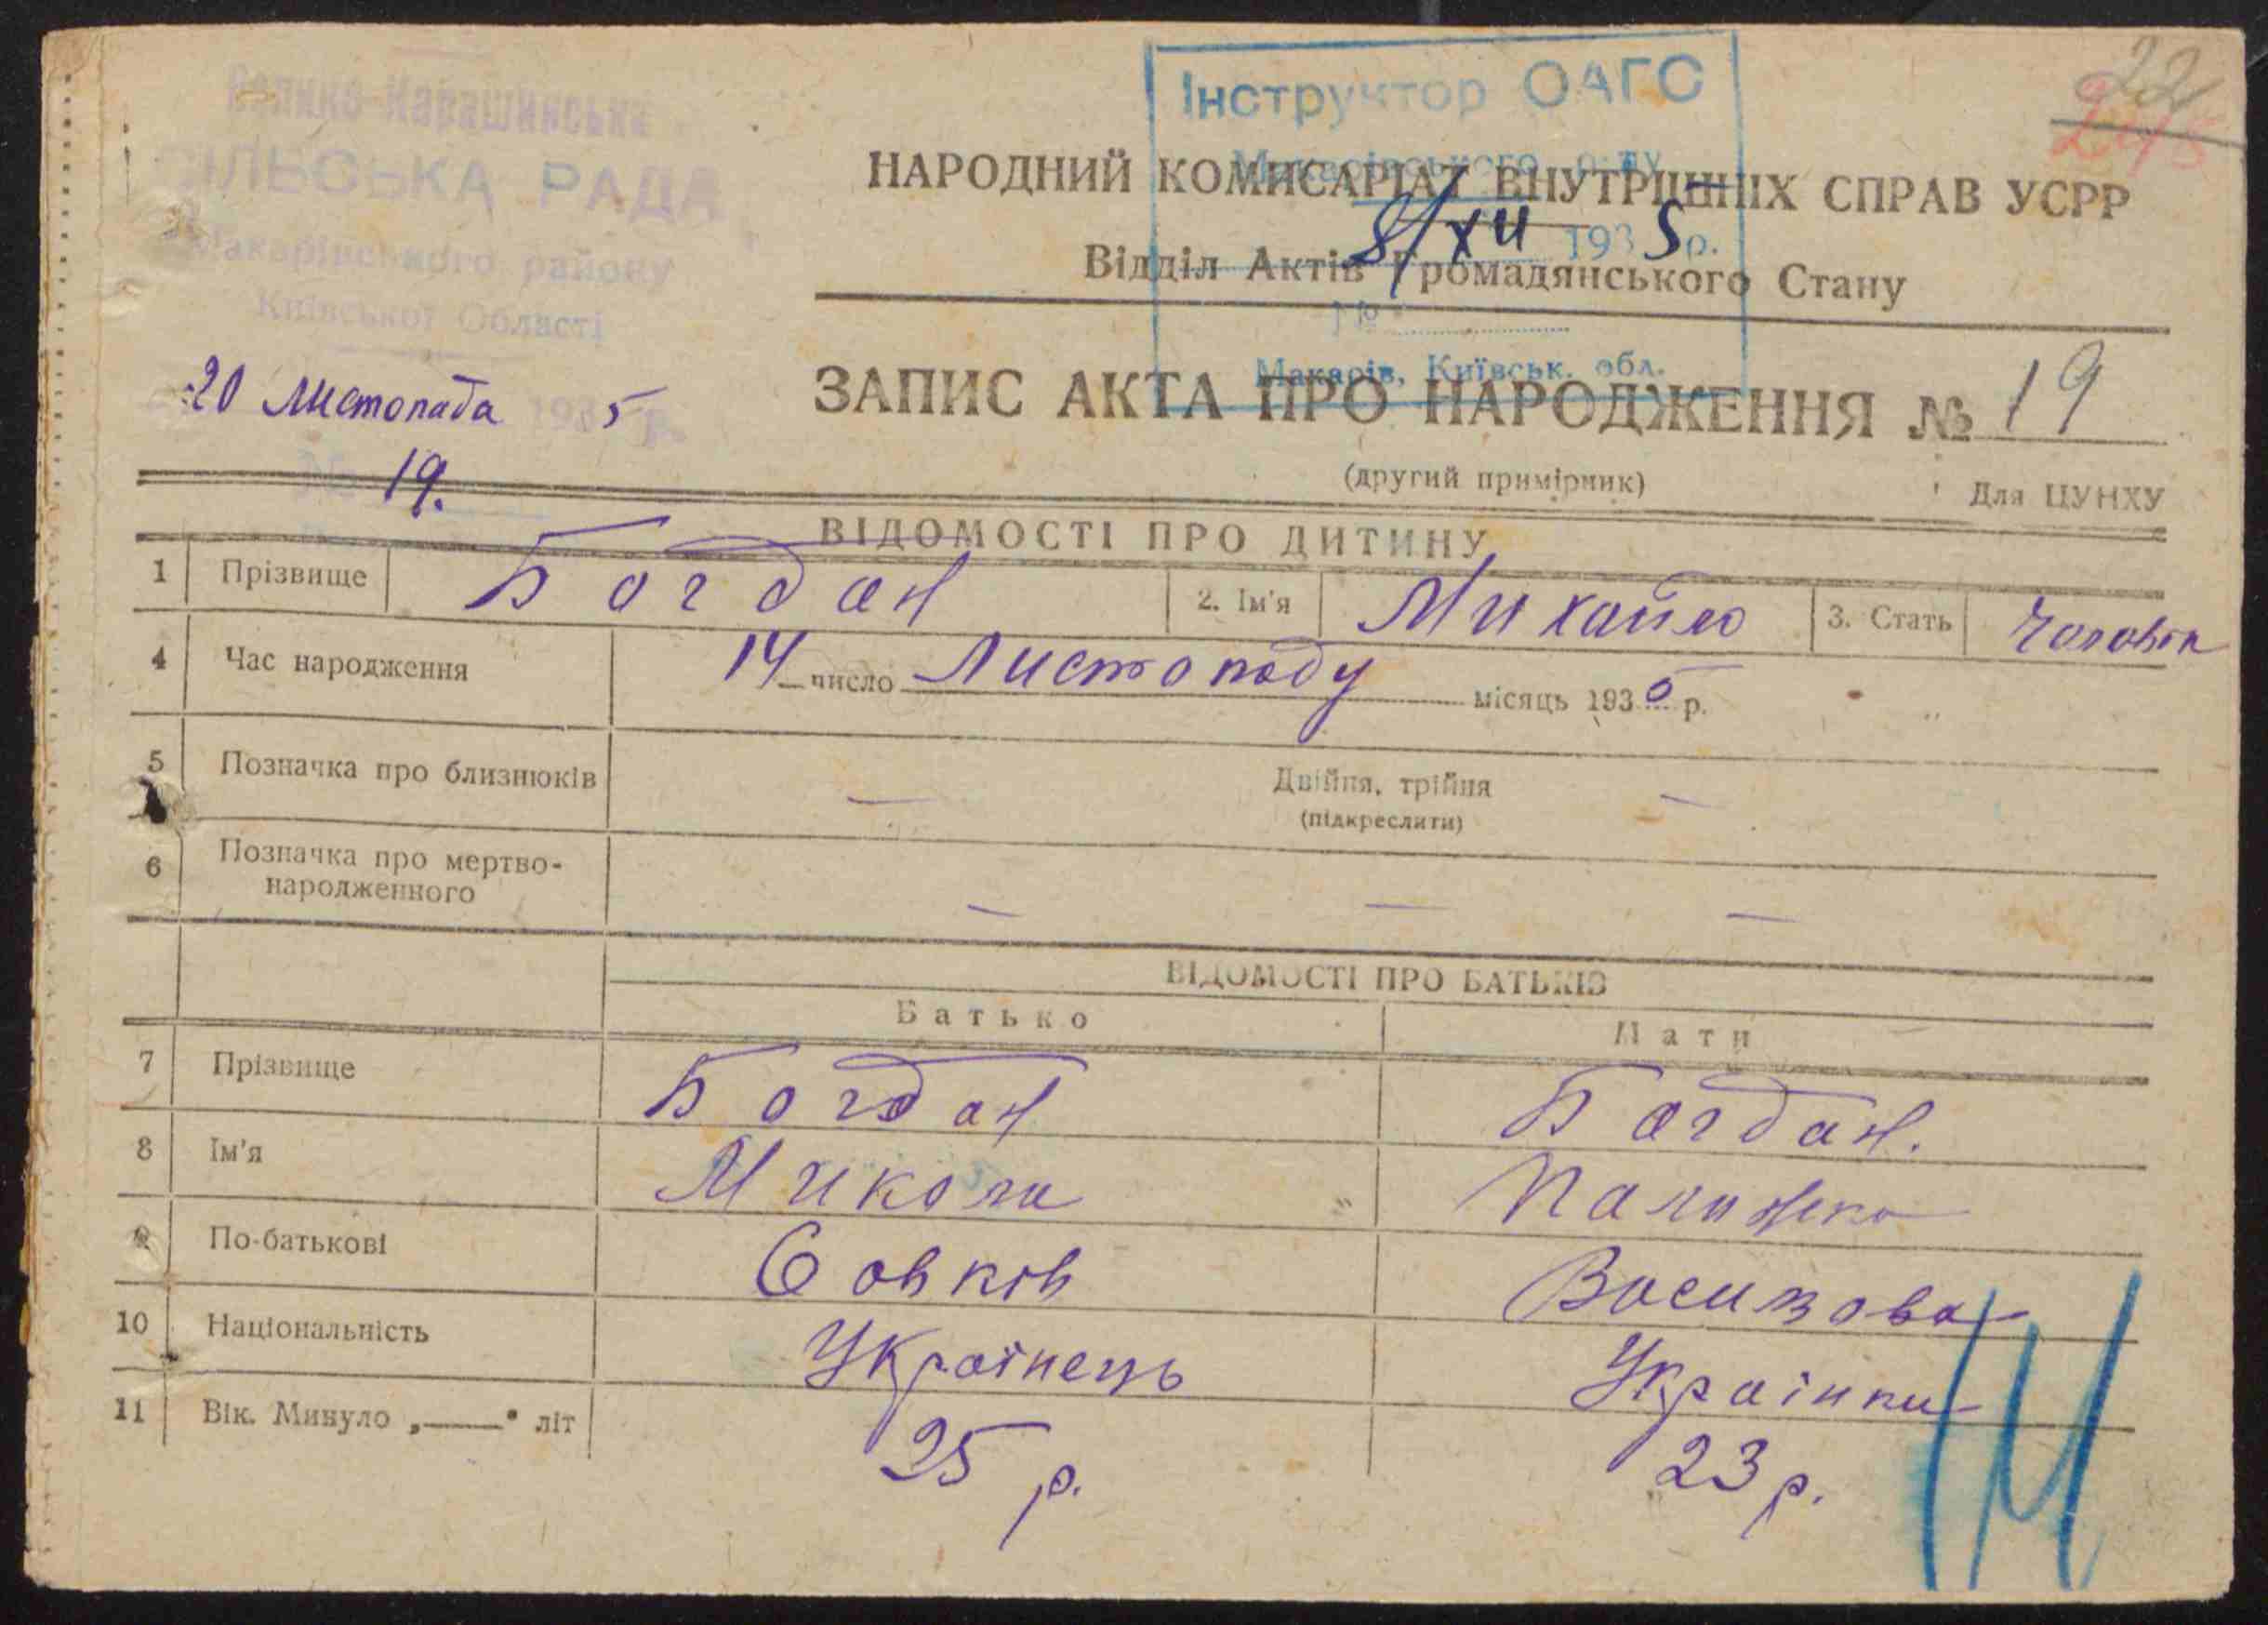 Велико-Карашинська
СІЛЬСЬКА РАДА
Макарівського району
Київської Області
20 Листопада 1935 р.
№ 19.
Інструктор ОАГС
Макарівського р-ну
8/XII 1935 р.
№
Макарів, Київськ. обл.
22
НАРОДНИЙ КОМИСАРІАТ ВНУТРІШНІХ СПРАВ УСРР
Відділ Актів Громадянського Стану
ЗАПИС АКТА ПРО НАРОДЖЕННЯ № 19
(другий примірник) Для ЦУНХУ
ВІДОМОСТІ ПРО ДИТИНУ
1 Прізвище Богдан 2. Ім'я Михайло 3. Стать Чоловік
4 Час народження 14 число Листопаду місяць 1935 р.
5 Позначка про близнюків — Двійня, трійня —
(підкреслити)
6 Позначка про мертво-
народженного — — —
ВІДОМОСТІ ПРО БАТЬКІВ
Батько Мати
7 Прізвище Богдан Богдан.
8 Ім'я Микола
9 По-батькові Василова
10 Національність Українець Українка
11 Вік. Минуло „—“ літ 25 р. 23 р.